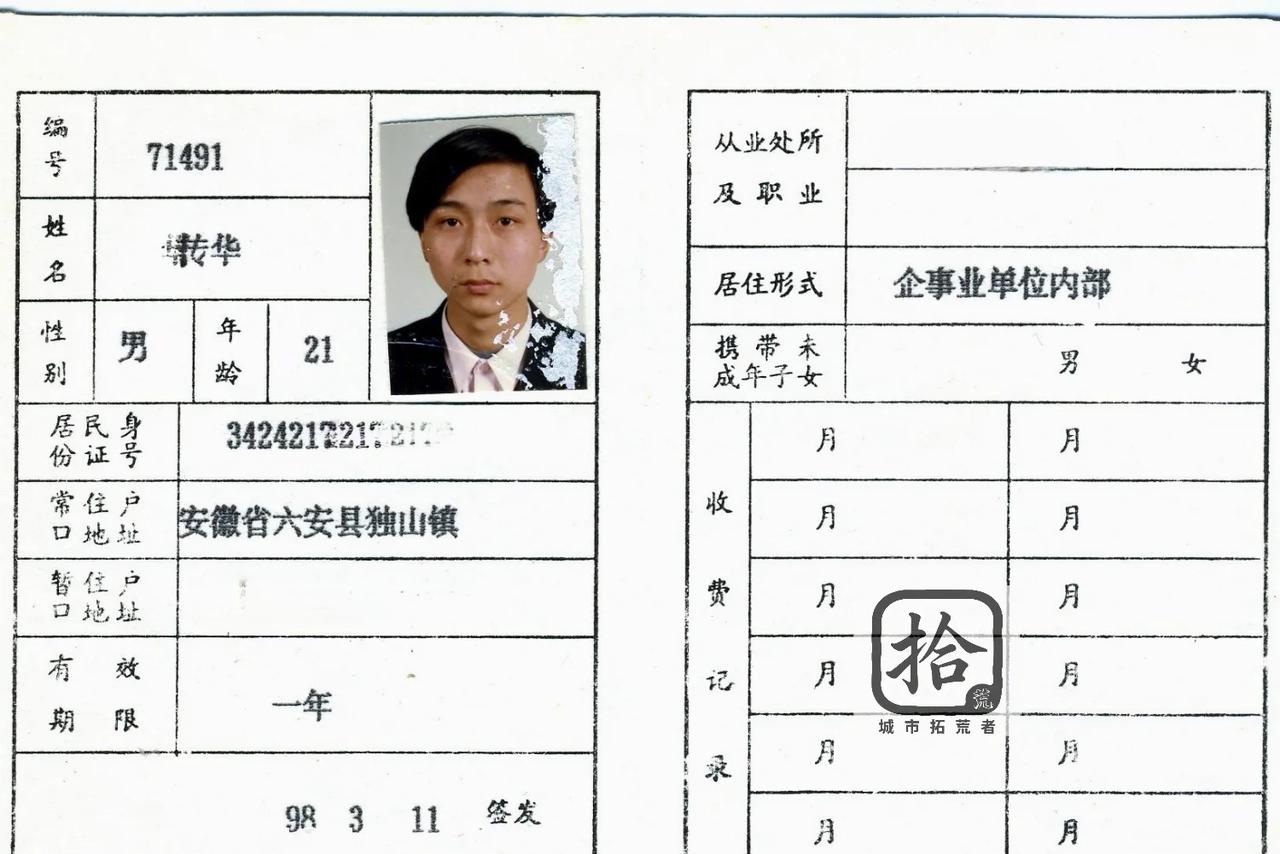 编号 71491
姓名 转华
性别 男 年龄 21
居民身份证号 3424217221
常住户口地址 安徽省六安县独山镇
暂住户口地址
有效期限 一年
98 3 11 签发
从业处所及职业
居住形式 企事业单位内部
携带未成年子女 男 女
收费记录
月 月
月 月
月 月
月 月
月 月
月 月
拾
荒
城市拓荒者